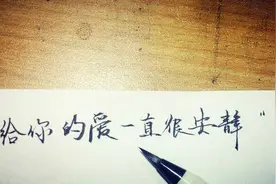 给你的爱一直很安静"